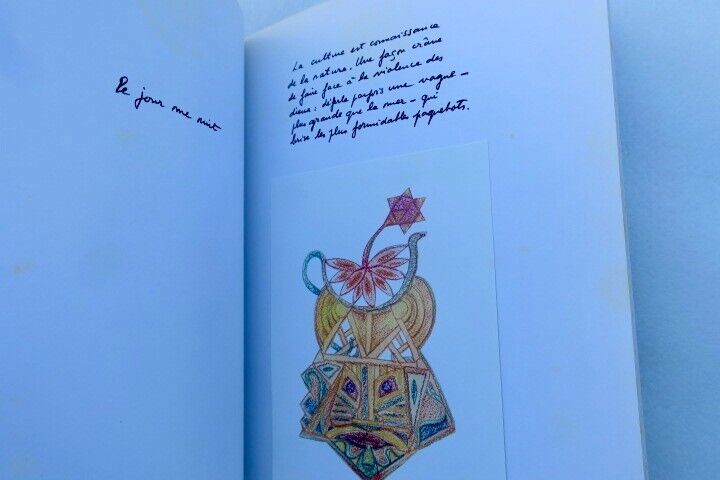 Le jour me nuit
La culture est connaissance
de la nature. Une façon crâne
de faire face à la violence des
dieux : déferle parfois une vague –
plus grande que la mer – qui
brise les plus formidables paquebots.